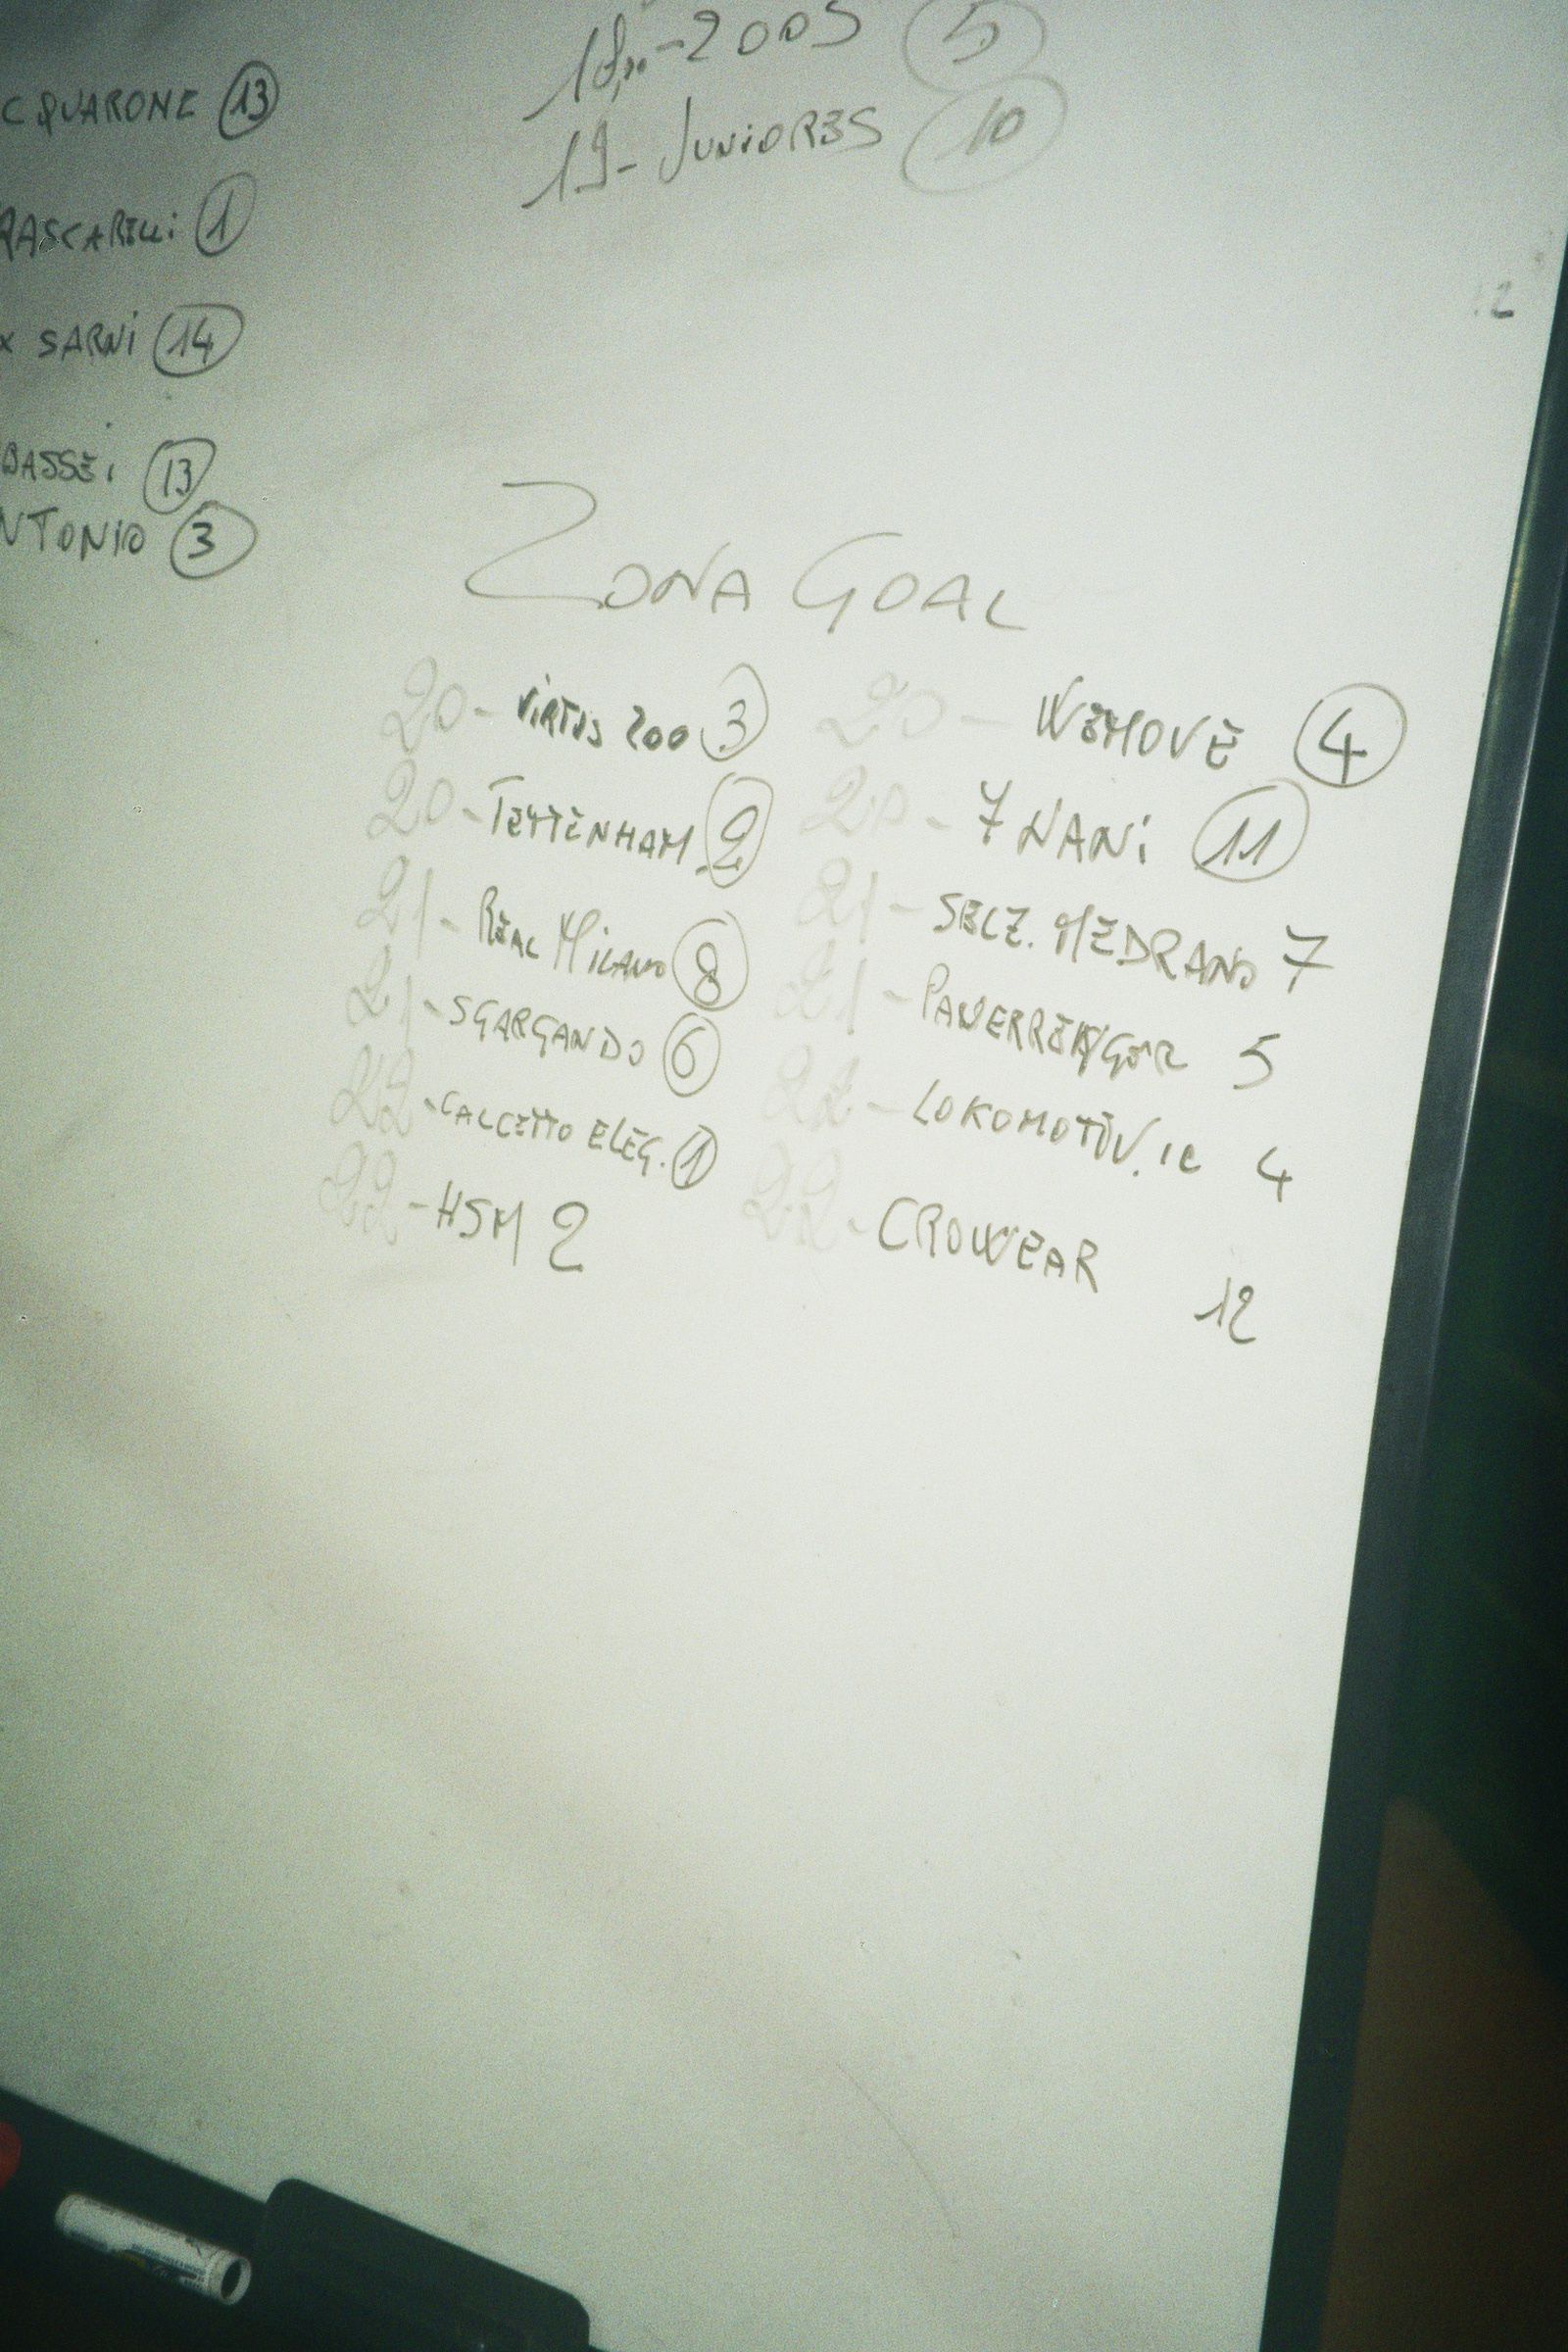 CQUARONE 13
RASCARELLI 1
x SARNI 14
BASSEI 13
NTONIO 3
18,30-2005 5
19-JUNIORES 10
12
ZONA GOAL
20- VIRTUS 200 3
20-TETTENHAM 2
21-REAL MILANO 8
21-SGARGANDO 6
22-CALCETTO ELEG. 1
22-HSM 2
20- WEMOVE 4
20- 7 NANI 11
21- SELZ. MEDRANO 7
21-
5
22- LOKOMOTIV. IL 4
22- CROWEAR
12